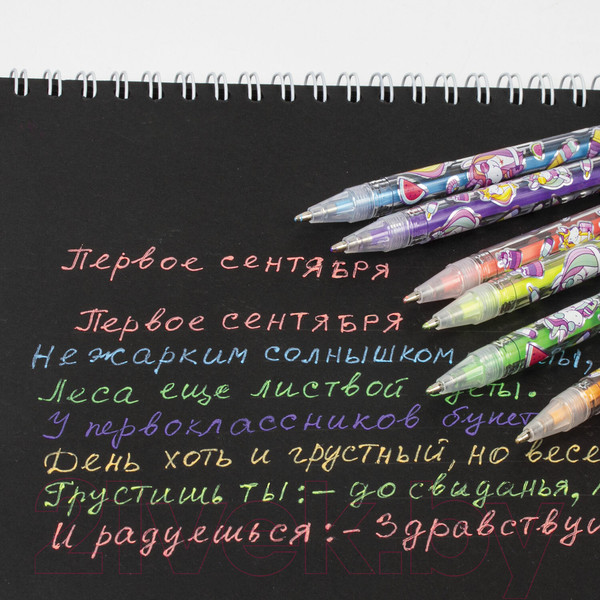 Первое сентября
Первое сентября
Нежарким солнышком
Леса еще листвой
У первоклассников букет
День хоть и грустный, но весе
Грустишь ты:– до свиданья,
И радуешься:– Здравствуй
21vek.by